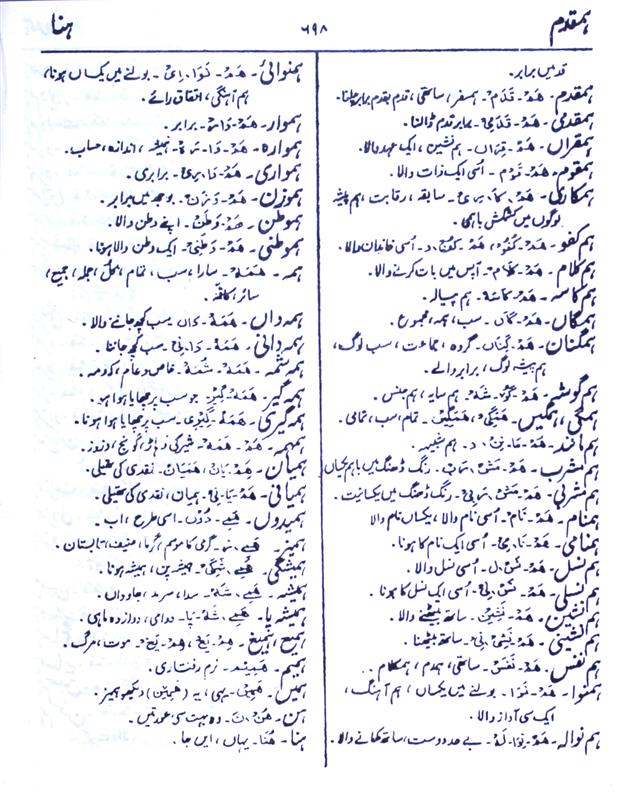 ہمقدم
۶۹۸
ہنا
قد میں برابر۔
ہمقدم۔ هَمْ۔ قَدَم۔ ہمسفر، ساتھی، قدم بقدم برابر چلنا۔
ہمقدمی۔ هَمْ۔ قَدَمِیْ۔ برابر قدم ڈالنا۔
ہمقراں۔ هَمْ۔ قِرَاں۔ ہم نشین، ایک عہد والا۔
ہمقوم۔ هَمْ۔ قَوْم۔ اُسی ایک ذات والا۔
ہمکاری۔ هَمْ۔ کَا۔ رِیْ۔ سابقہ، رقابت، ہم پیشہ
لوگوں میں کشمکش باہمی۔
ہم کفو۔ هَمْ۔ کُفُو، هَمْ۔ کُفْو۔ د۔ اُسی خاندان والا۔
ہم کلام۔ هَمْ۔ کَلَام۔ آپس میں بات کرنے والا۔
ہم کاسہ۔ هَمْ۔ کَاسَہ۔ ہم پیالہ۔
ہمگاں۔ هَمْ۔ گَاں۔ سب، ہمہ، مجموع۔
ہمگناں۔ هَمْ۔ گِنَاں۔ گروہ، جماعت، سب لوگ،
ہم پیشہ لوگ، برابر والے۔
ہم گوشہ۔ هَمْ۔ گَوْ۔ شَہ۔ ہم سایہ، ہم جنس۔
ہمگی، ہمگیں۔ هَمَگِیْ، هَمَگِیْں۔ تمام، سب، تمامی۔
ہم مانند۔ هَمْ۔ مَا۔ نِنْ۔ د۔ ہم شبیہ۔
ہم مشرب۔ هَمْ۔ مَشْ۔ رَب۔ رنگ ڈھنگ میں باہم یکساں
ہم مشربی۔ هَمْ۔ مَشْ۔ رَبِیْ۔ رنگ ڈھنگ میں یکسانیت۔
ہمنام۔ هَمْ۔ نَام۔ اُسی نام والا، یکساں نام والا
ہمنامی۔ هَمْ۔ نَا۔ مِیْ۔ اُسی ایک نام کا ہونا۔
ہم نسل۔ هَمْ۔ نَسْ۔ ل۔ اُسی نسل والا۔
ہم نسلی۔ هَمْ۔ نَسْ۔ لِیْ۔ اُسی ایک نسل کا ہونا۔
ہم نشین۔ هَمْ۔ نَشِیْن۔ ساتھ بیٹھنے والا۔
ہم نشینی۔ هَمْ۔ نَشِیْ۔ نِیْ۔ ساتھ بیٹھنا۔
ہم نفس۔ هَمْ۔ نَفَسْ۔ ساتھی، ہمدم، ہمکلام۔
ہمنوا۔ هَمْ۔ نَوَا۔ بولنے میں یکساں، ہم آہنگ،
ایک سی آواز والا۔
ہم نوالہ۔ هَمْ۔ نِوَا۔ لَہْ۔ بے حد دوست، ساتھ کھانے والا۔
ہمنوائی۔ هَمْ۔ نَوَا۔ اِیْ۔ بولنے میں یکساں ہونا،
ہم آہنگی، اتفاق رائے۔
ہموار۔ هَمْ۔ وَار۔ برابر۔
ہموارہ۔ هَمْ۔ وَا۔ رَہ۔ ہمیشہ، اندازہ، حساب۔
ہمواری۔ هَمْ۔ وَا۔ رِیْ۔ برابری۔
ہموزن۔ هَمْ۔ وَزَن۔ بوجھ میں برابر۔
ہموطن۔ هَمْ۔ وَطَن۔ اپنے وطن والا۔
ہموطنی۔ هَمْ۔ وَطَنِیْ۔ ایک وطن والا ہونا۔
ہمہ۔ هَمَہْ۔ سارا، سب، تمام، کل، جملہ، جمیع،
سائر، کافّہ۔
ہمہ داں۔ هَمَہْ۔ دَاں۔ سب کچھ جاننے والا۔
ہمہ دانی۔ هَمَہْ۔ دَا۔ نِیْ۔ سب کچھ جاننا۔
ہمہ شمہ۔ هَمَہْ۔ شُمَہْ۔ خاص و عام، کہ و مہ۔
ہمہ گیر۔ هَمَہْ۔ گِیْر۔ جو سب پر چھایا ہوا ہو۔
ہمہ گیری۔ هَمَہْ۔ گِیْرِی۔ سب پر چھایا ہوا ہونا۔
ہمہمہ۔ هَمْ۔ هَمَہْ۔ شیر کی دہاڑ، گونج، دزوز۔
ہمیان۔ هِمْ۔ یَان، هَمْیَان۔ نقدی کی تھیلی۔
ہمیانی۔ هَمْ۔ یَا۔ نِیْ۔ ہمیان، نقدی کی تھیلی۔
ہمیدوں۔ هَمِے۔ دُوْں۔ اسی طرح، اب۔
ہمیز۔ هَمِے۔ ز۔ گرمی کا موسم، گرما، صیف، تابستان۔
ہمیشگی۔ هَمِے۔ شَگِی۔ ہمیشہ پن، ہمیشہ ہونا۔
ہمیشہ۔ هَمِے۔ شَہْ۔ سدا، سرمد، جاوداں۔
ہمیشہ پا۔ هَمِے۔ شَہْ۔ پَا۔ دوامی، دوازدہ ماہی۔
ہمیغ، ہمیغ۔ هِمْ۔ یَغْ، هِمْ۔ یَغْ۔ موت، مرگ۔
ہمیم۔ هَمِیْم۔ نرم رفتاری۔
ہمیں۔ هَمِیْں۔ یہی، یہ (هَمِیْن) دیکھو ہمیز۔
ہن۔ هُنْ۔ نَ۔ وہ بہت سی عورتیں۔
ہنا۔ هُنَا۔ یہاں، ایں جا۔